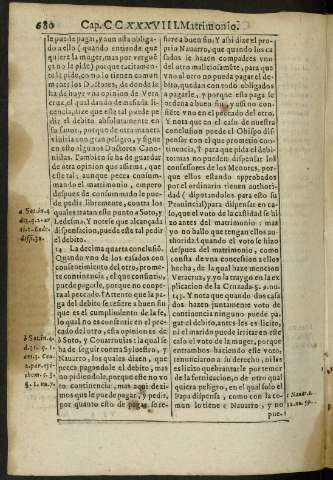 680 Cap. CCXXXVIII. Matrimonio.
le puede pagar, y aun esta obliga-
do a ello (quando entienda que
quiere la muger, mas por verguē
ça no la pide) porque tacitamen-
te la pide, como lo tienen comun
mente los Doctores, de donde se
ha de huyr vna opinion de Vera
cruz, el qual dando demasiada li-
cencia, dize que este tal puede pe-
dir el debito absolutamente en
su fauor, porque de otra manera
viuiria con gran peligro, y sigue
en esto algunos Doctores Cano-
nistas. Tambien se ha de guardar
de otra opinion que afirma, que
este tal, aunque pecca continua
mando el matrimonio, empero
despues de consummado le pue-
de pedir libremente, contra los
quales tratan este punto a Soto, y
Ledesma. Y note se que alcançada
dispensacion, puede este tal pedir
el debito.
14 La decima quarta conclusiō.
Quando vno de los casados con
consentimiento del otro, prome-
te continencia, el que consiente,
puede pagarle, porque no coope-
ra al pecado. Attento que la pa-
ga del debito se refiere a buen fin
que es el cumplimiento de la fe,
lo qual no se contrario en el pec-
cado del otro, esta opinion es de
à Soto, y Couarruuias: la qual se
ha de seguir contra Sylvestro, y
Nauarro, los quales dizen, que
pecca pagandole el debito, mas
no pidiendole, porque este no vo
to continencia: mas aqui dezi-
mos que le puede pagar, y pedir,
por quanto esto de pagar, se re-
a Soto in. 4.
à Soto in. 4.
fiere a buen fin. Y assi dize el pro-
prio Nauarro, que quando los ca-
sados se hazen compadres vno
del otro maliciosamēte, para que
vno al otro no pueda pagar el de-
bito, que dan con todo obligados
a pagarle, y porque esta paga se
ordena a buen fin, y assi no con-
siēte vno en el peccado del otro.
Y nota que en el caso de nuestra
conclusion puede el Obispo dis-
pensar con el que promete conti-
nencia, Y para que pida el debito
mas no pueden dispensar los
confessores de los Menores, por-
que ellos estando aprobados
por el ordinario tienen authori-
dad (diputandolos para ello su
Prouincial) para dispensar en ca-
so, que el voto de la castidad se hi
zo antes del matrimonio: mas
yo no hallo que tengan ellos au
thoridad quando el voto se hizo
despues del matrimonio, como
consta de vna concession a ellos
hecha, de la qual haze mencion
Veracruz, y yo la traygo en la ex
plicacion de la Cruzada. §. 9. nu.
14. Y nota, que quando dos casa
dos hazen juntamente voto de
continencia ninguno puede pa-
gar el debito, antes les es licito,
ni el marido puede irritar en este
caso el voto de la muger, porque
entrambos haziendo este voto,
renunciaron a su derecho, ni les
es licito quebrantarle por temor
de la fornicacion, o de otro qual
quiera peligro, en el qual solo el
Papa dispensa, como con la co-
mun lo tiene c Nauarro, y no
pue-